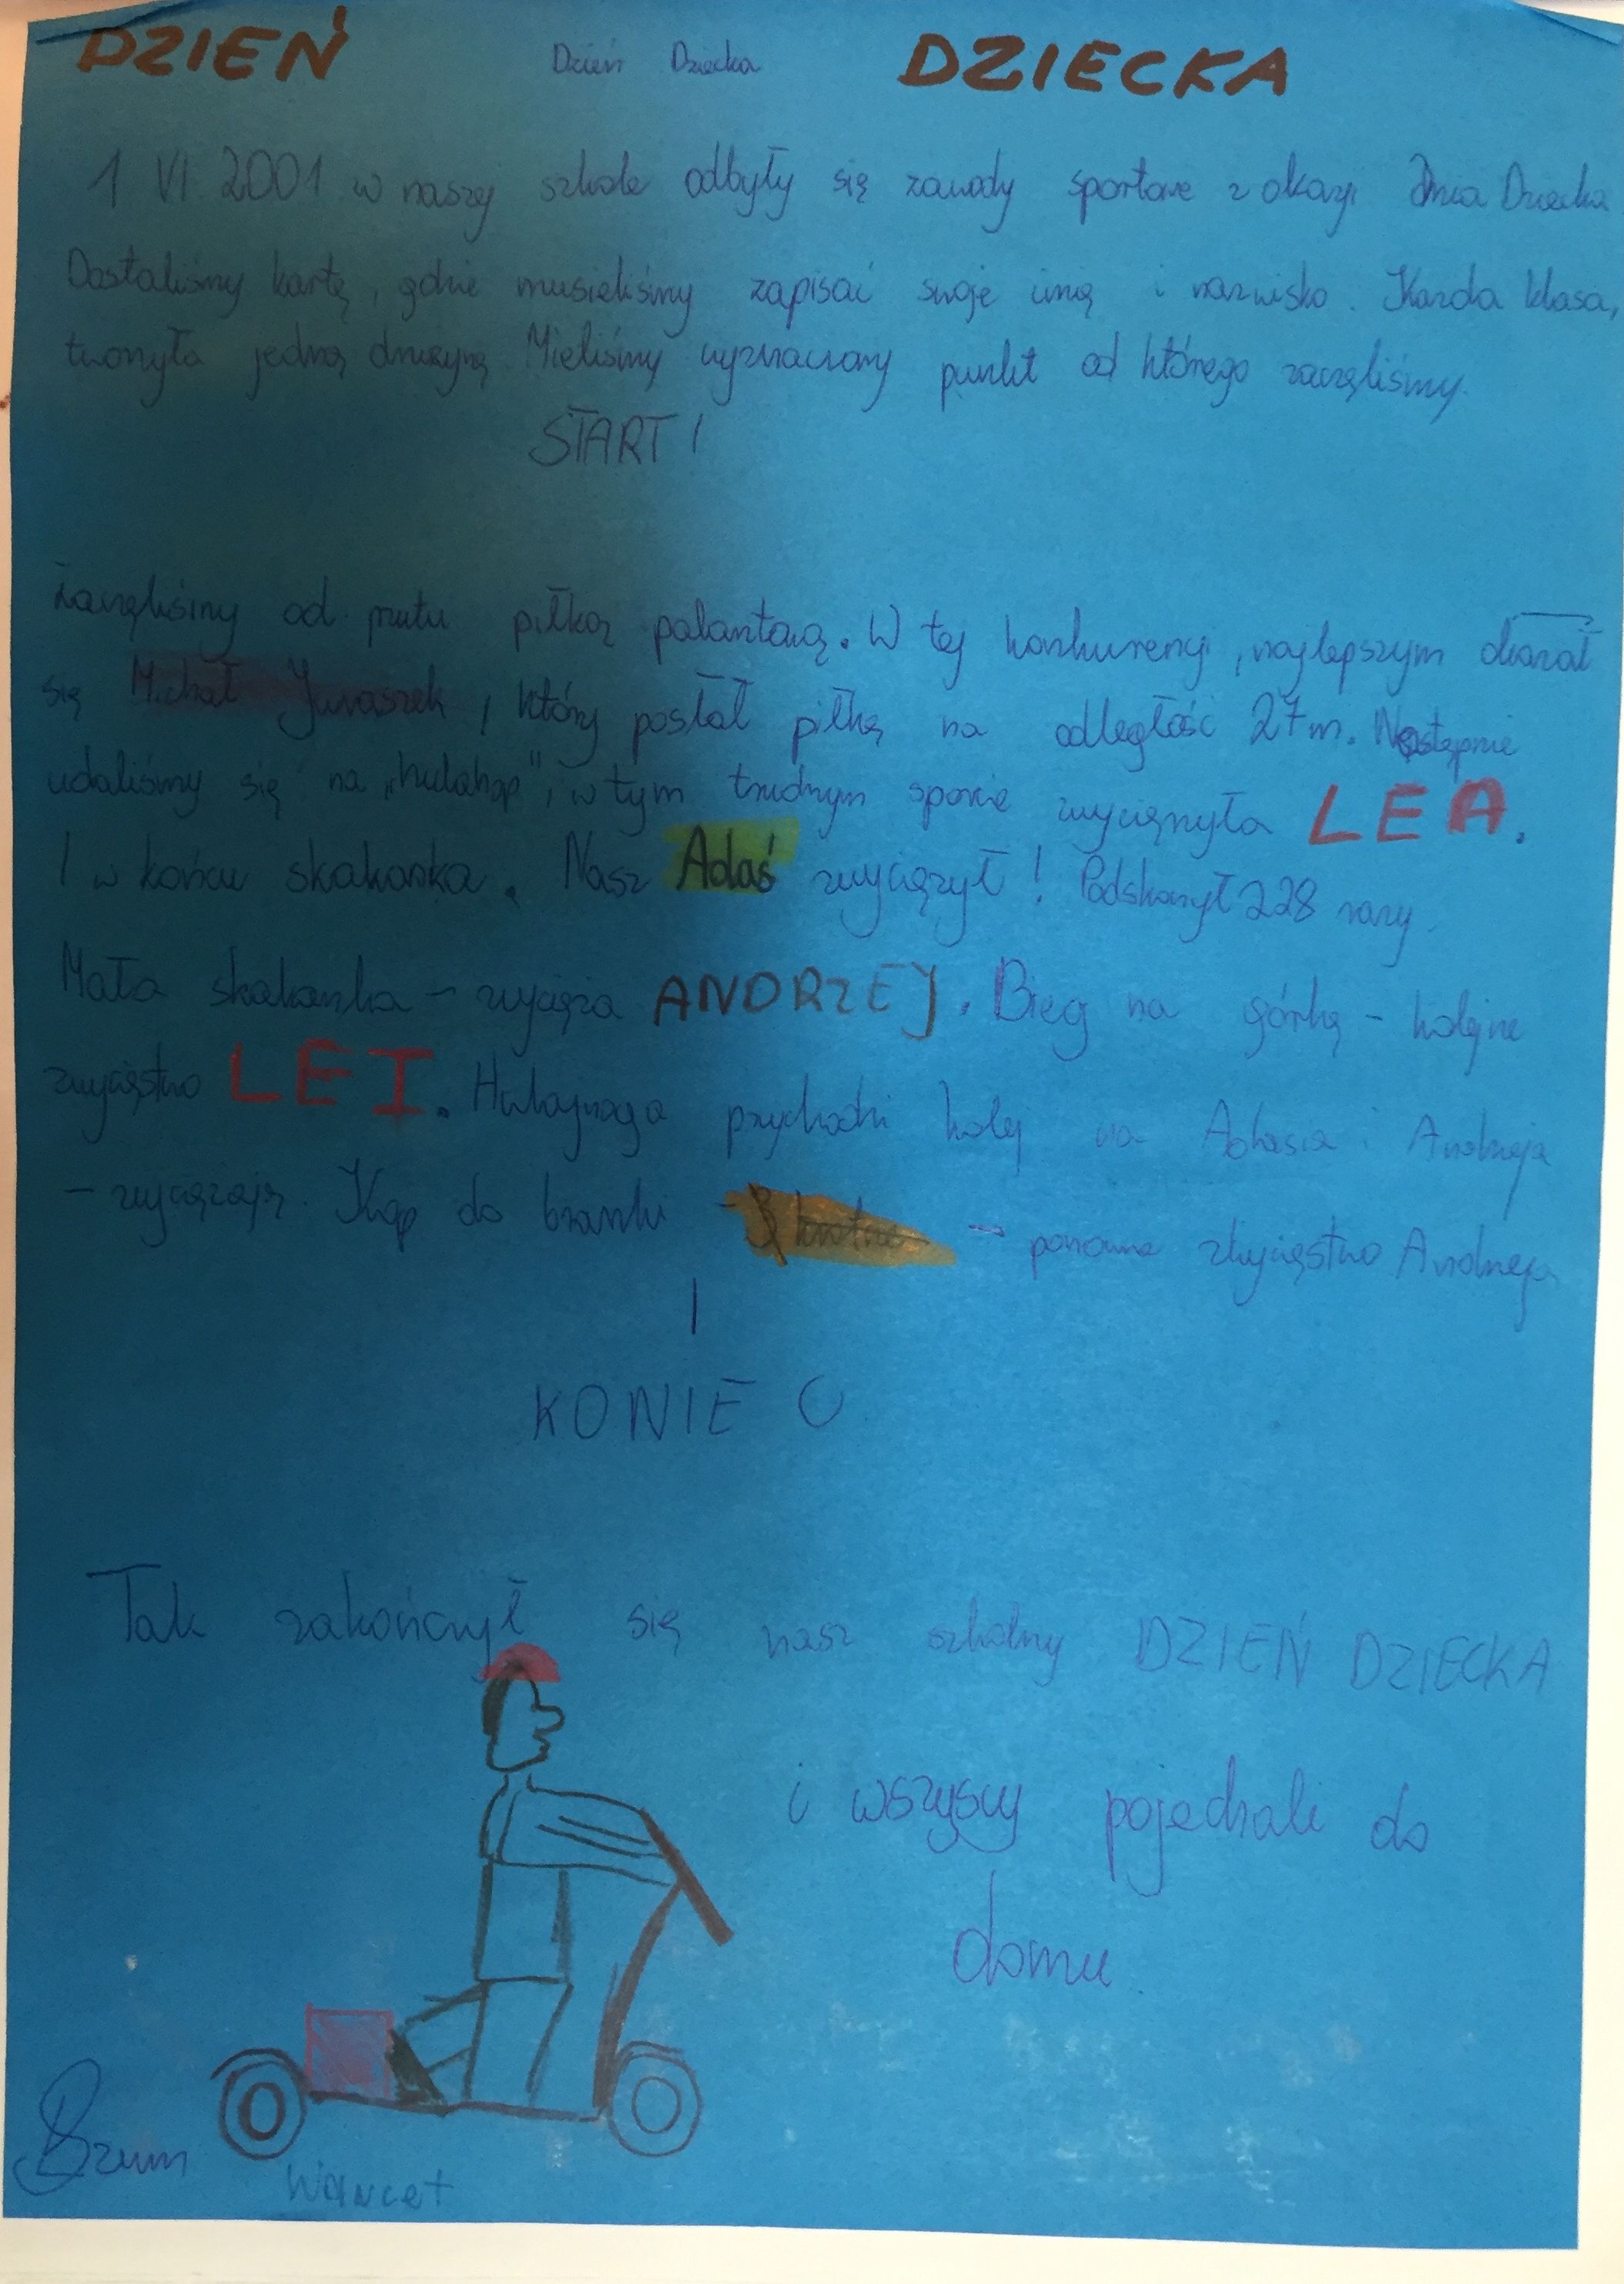 DZIEŃ Dzień Dziecka DZIECKA
1 VI 2001 w naszej szkole odbyły się zawody sportowe z okazji Dnia Dziecka
Dostaliśmy kartę, gdzie musieliśmy zapisać swoje imię i nazwisko. Każda klasa,
tworzyła jedną drużynę Mieliśmy wyznaczony punkt od którego zaczęliśmy.
START!
Zaczęliśmy od rzutu piłką palantową. W tej konkurencji, najlepszym okazał
się Michał Juraszek, który posłał piłkę na odległość 27m. Następnie
udaliśmy się na „hulahop”, w tym trudnym sporcie zwyciężyła LEA.
I w końcu skakanka. Nasz Adaś zwyciężył! Podskoczył 228 razy.
Mała skakanka – zwycięża ANDRZEJ. Bieg na górkę – kolejne
zwycięstwo LEI. Hulajnoga przychodzi kolej na Adasia i Andrzeja
– zwyciężają. Kop do bramki – – ponowne zwycięstwo Andrzeja
|
KONIEC
Tak zakończył się nasz szkolny DZIEŃ DZIECKA
i wszyscy pojechali do
domu.
Bzum